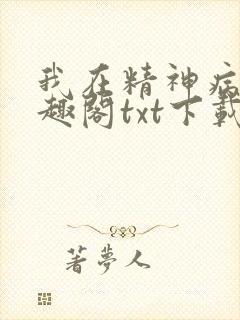 我在精神病
趣閣txt下載
著夢人